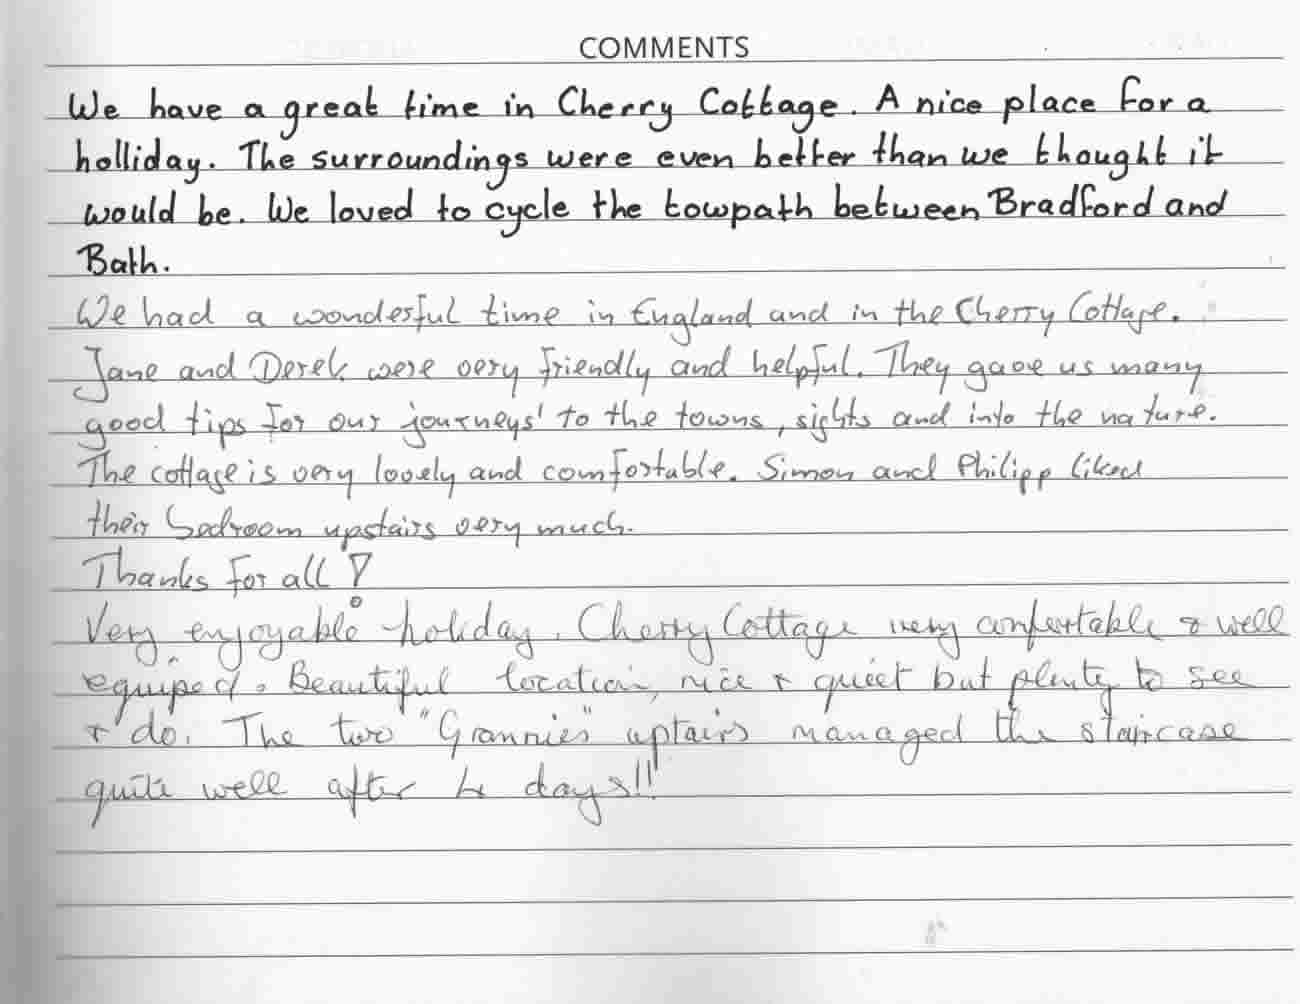 COMMENTS
We have a great time in Cherry Cottage. A nice place for a
holliday. The surroundings were even better than we thought it
would be. We loved to cycle the towpath between Bradford and
Bath.
We had a wonderful time in England and in the Cherry Cottage.
Jane and Derek were very friendly and helpful. They gave us many
good tips for our journeys' to the towns, sights and into the nature.
The cottage is very lovely and comfortable. Simon and Philipp liked
their bedroom upstairs very much.
Thanks for all!
Very enjoyable holiday. Cherry Cottage very comfortable & well
equiped. Beautiful location, nice & quiet but plenty to see
& do. The two "Grannies" uptairs managed the staircase
quite well after 4 days!!